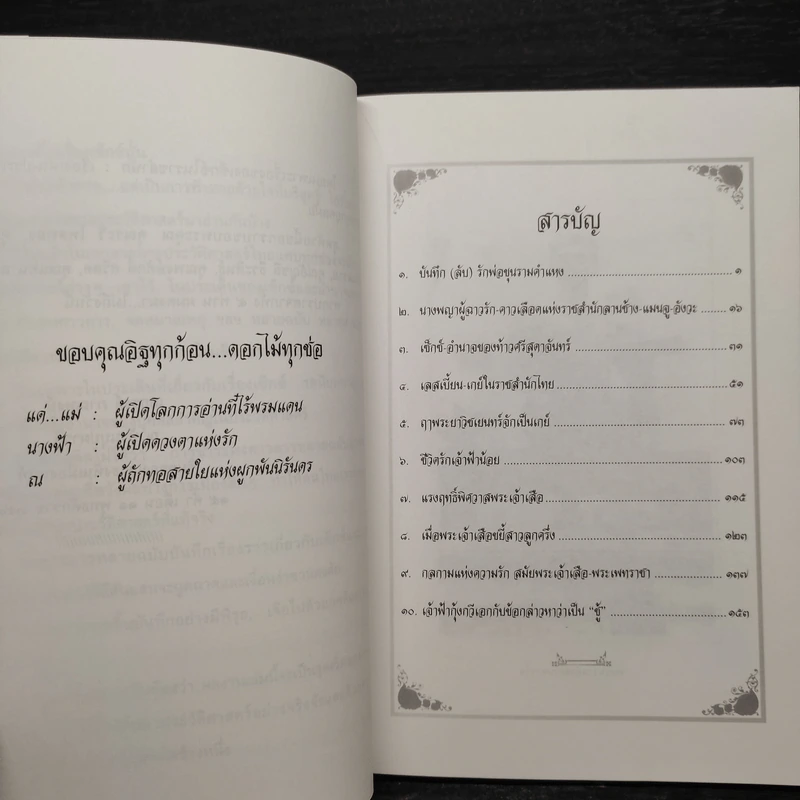 ขอบคุณอิฐทุกก้อน...ดอกไม้ทุกช่อ
แด่...แม่ : ผู้เปิดโลกการอ่านที่ไร้พรมแดน
นางฟ้า : ผู้เปิดดวงตาแห่งรัก
ณ : ผู้ถักทอสายใยแห่งผูกพันนิรันดร
สารบัญ
๑. บันทึก (ลับ) รักพ่อขุนรามคำแหง ๑
๒. นางพญาผู้ฉาวรัก-คาวเลือดแห่งราชสำนักลานช้าง-แมนจู-อังวะ ๑๖
๓. เซ็กซ์-อำนาจของท้าวศรีสุดาจันทร์ ๓๑
๔. เลสเบี้ยน-เกย์ในราชสำนักไทย ๕๑
๕. ฤาพระยาวิชเยนทร์จักเป็นเกย์ ๗๓
๖. ชีวิตรักเจ้าฟ้าน้อย ๑๐๓
๗. แรงฤทธิ์พิศวาสพระเจ้าเสือ ๑๑๕
๘. เมื่อพระเจ้าเสือขยี้สาวลูกครึ่ง ๑๒๓
๙. กลกามแห่งความรัก สมัยพระเจ้าเสือ-พระเพทราชา ๑๓๗
๑๐. เจ้าฟ้ากุ้งกวีเอกกับข้อกล่าวหาว่าเป็น "ชู้" ๑๕๓